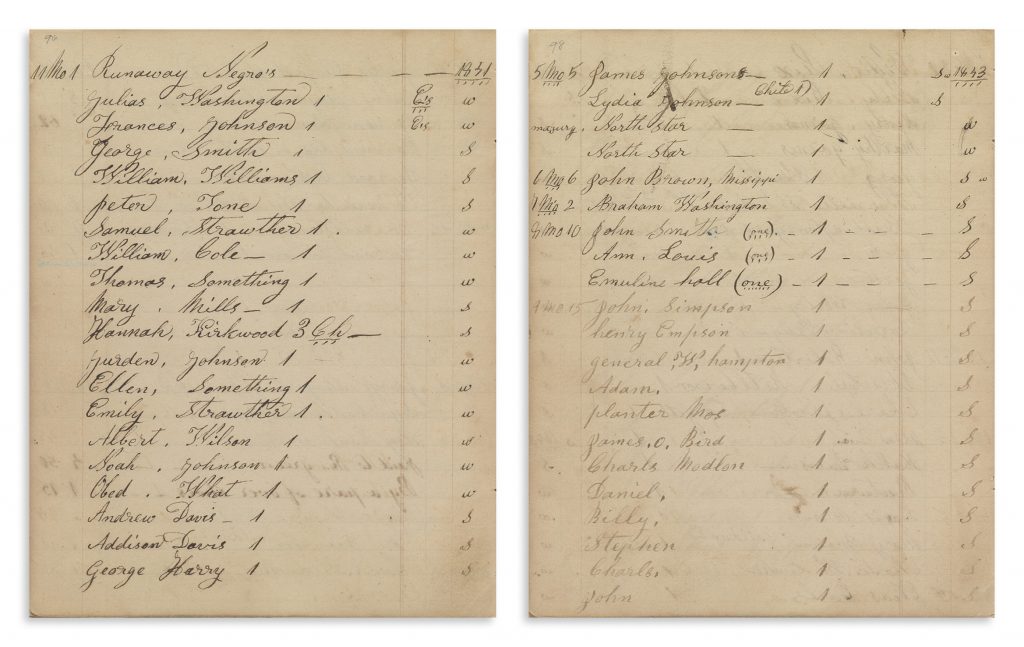 98
11 Mo 1 Runaway Negro's — — — — 1831
Julias, Washington 1 Eis w
Frances, Johnson 1 Eis w
George, Smith 1 S
William, Williams 1 S
peter, Tone 1 S
Samuel, Strawther 1. w
William, Cole — 1 w
Thomas, Something 1 w
Mary. Mills — 1 S
Hannah, Kirkwood 3 Ch — S
Jurden, Johnson 1 w
Ellen, Something 1 w
Emily, Strawther 1. w
Albert, Wilson 1 w
Noah, Johnson 1 w
Obed. What 1 w
Andrew Davis — 1 S
Addison Davis 1 S
George Harry 1 S
98
5 Mo 5 James Johnson — 1 S w 1833
Child 1
Lydia Johnson — 1 S
North Star — 1 w
North Star — 1 w
6 Mo 6 John Brown, Missippi 1 S w
1 Mo 2 Abraham Washington 1 S
Mo 10 John Smith (one). — 1 — — — S
Ann, Louis (one) — 1 — — — S
Emuline hall (one) — 1 — — — S
1 Mo 15 John, Simpson 1 S
henry Empson 1 S
general, W, hampton 1 S
Adam, 1 S
planter Mos 1 S
James, O, Bird 1 S
Charls Modlon 1 S
Daniel, 1 S
Billy, 1 S
Stephen 1 S
Charls, 1 S
John 1 S